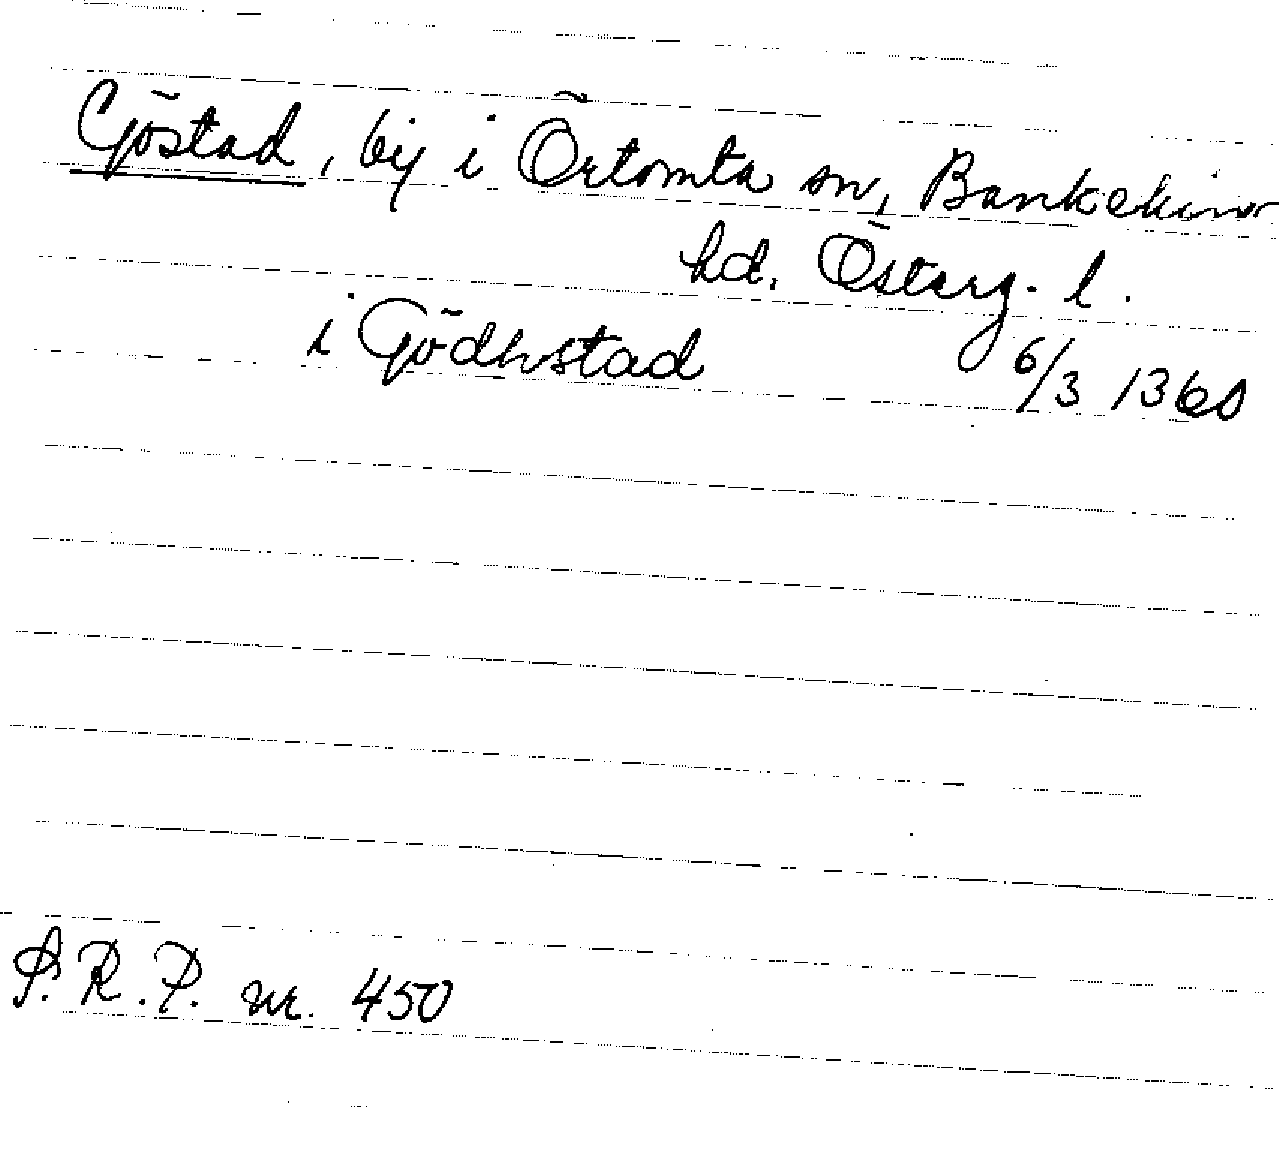 Göstad, by i Örtomta sn, Bankekinds
hd. Österg. l.
i Gödhstad 6/3 1360
S.R.P. nr. 450